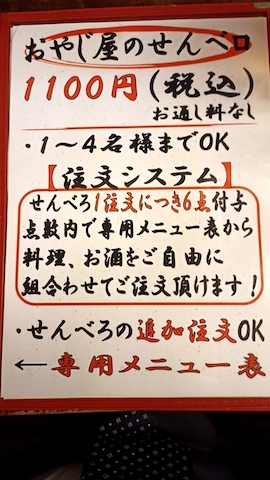 おやじ屋のせんベロ
1100円(税込)
お通し料なし
・1～4名様までOK
【注文システム】
せんべろ1注文につき6点付与
点数内で専用メニュー表から
料理、お酒をご自由に
組合わせてご注文頂けます！
・せんべろの追加注文OK
←専用メニュー表